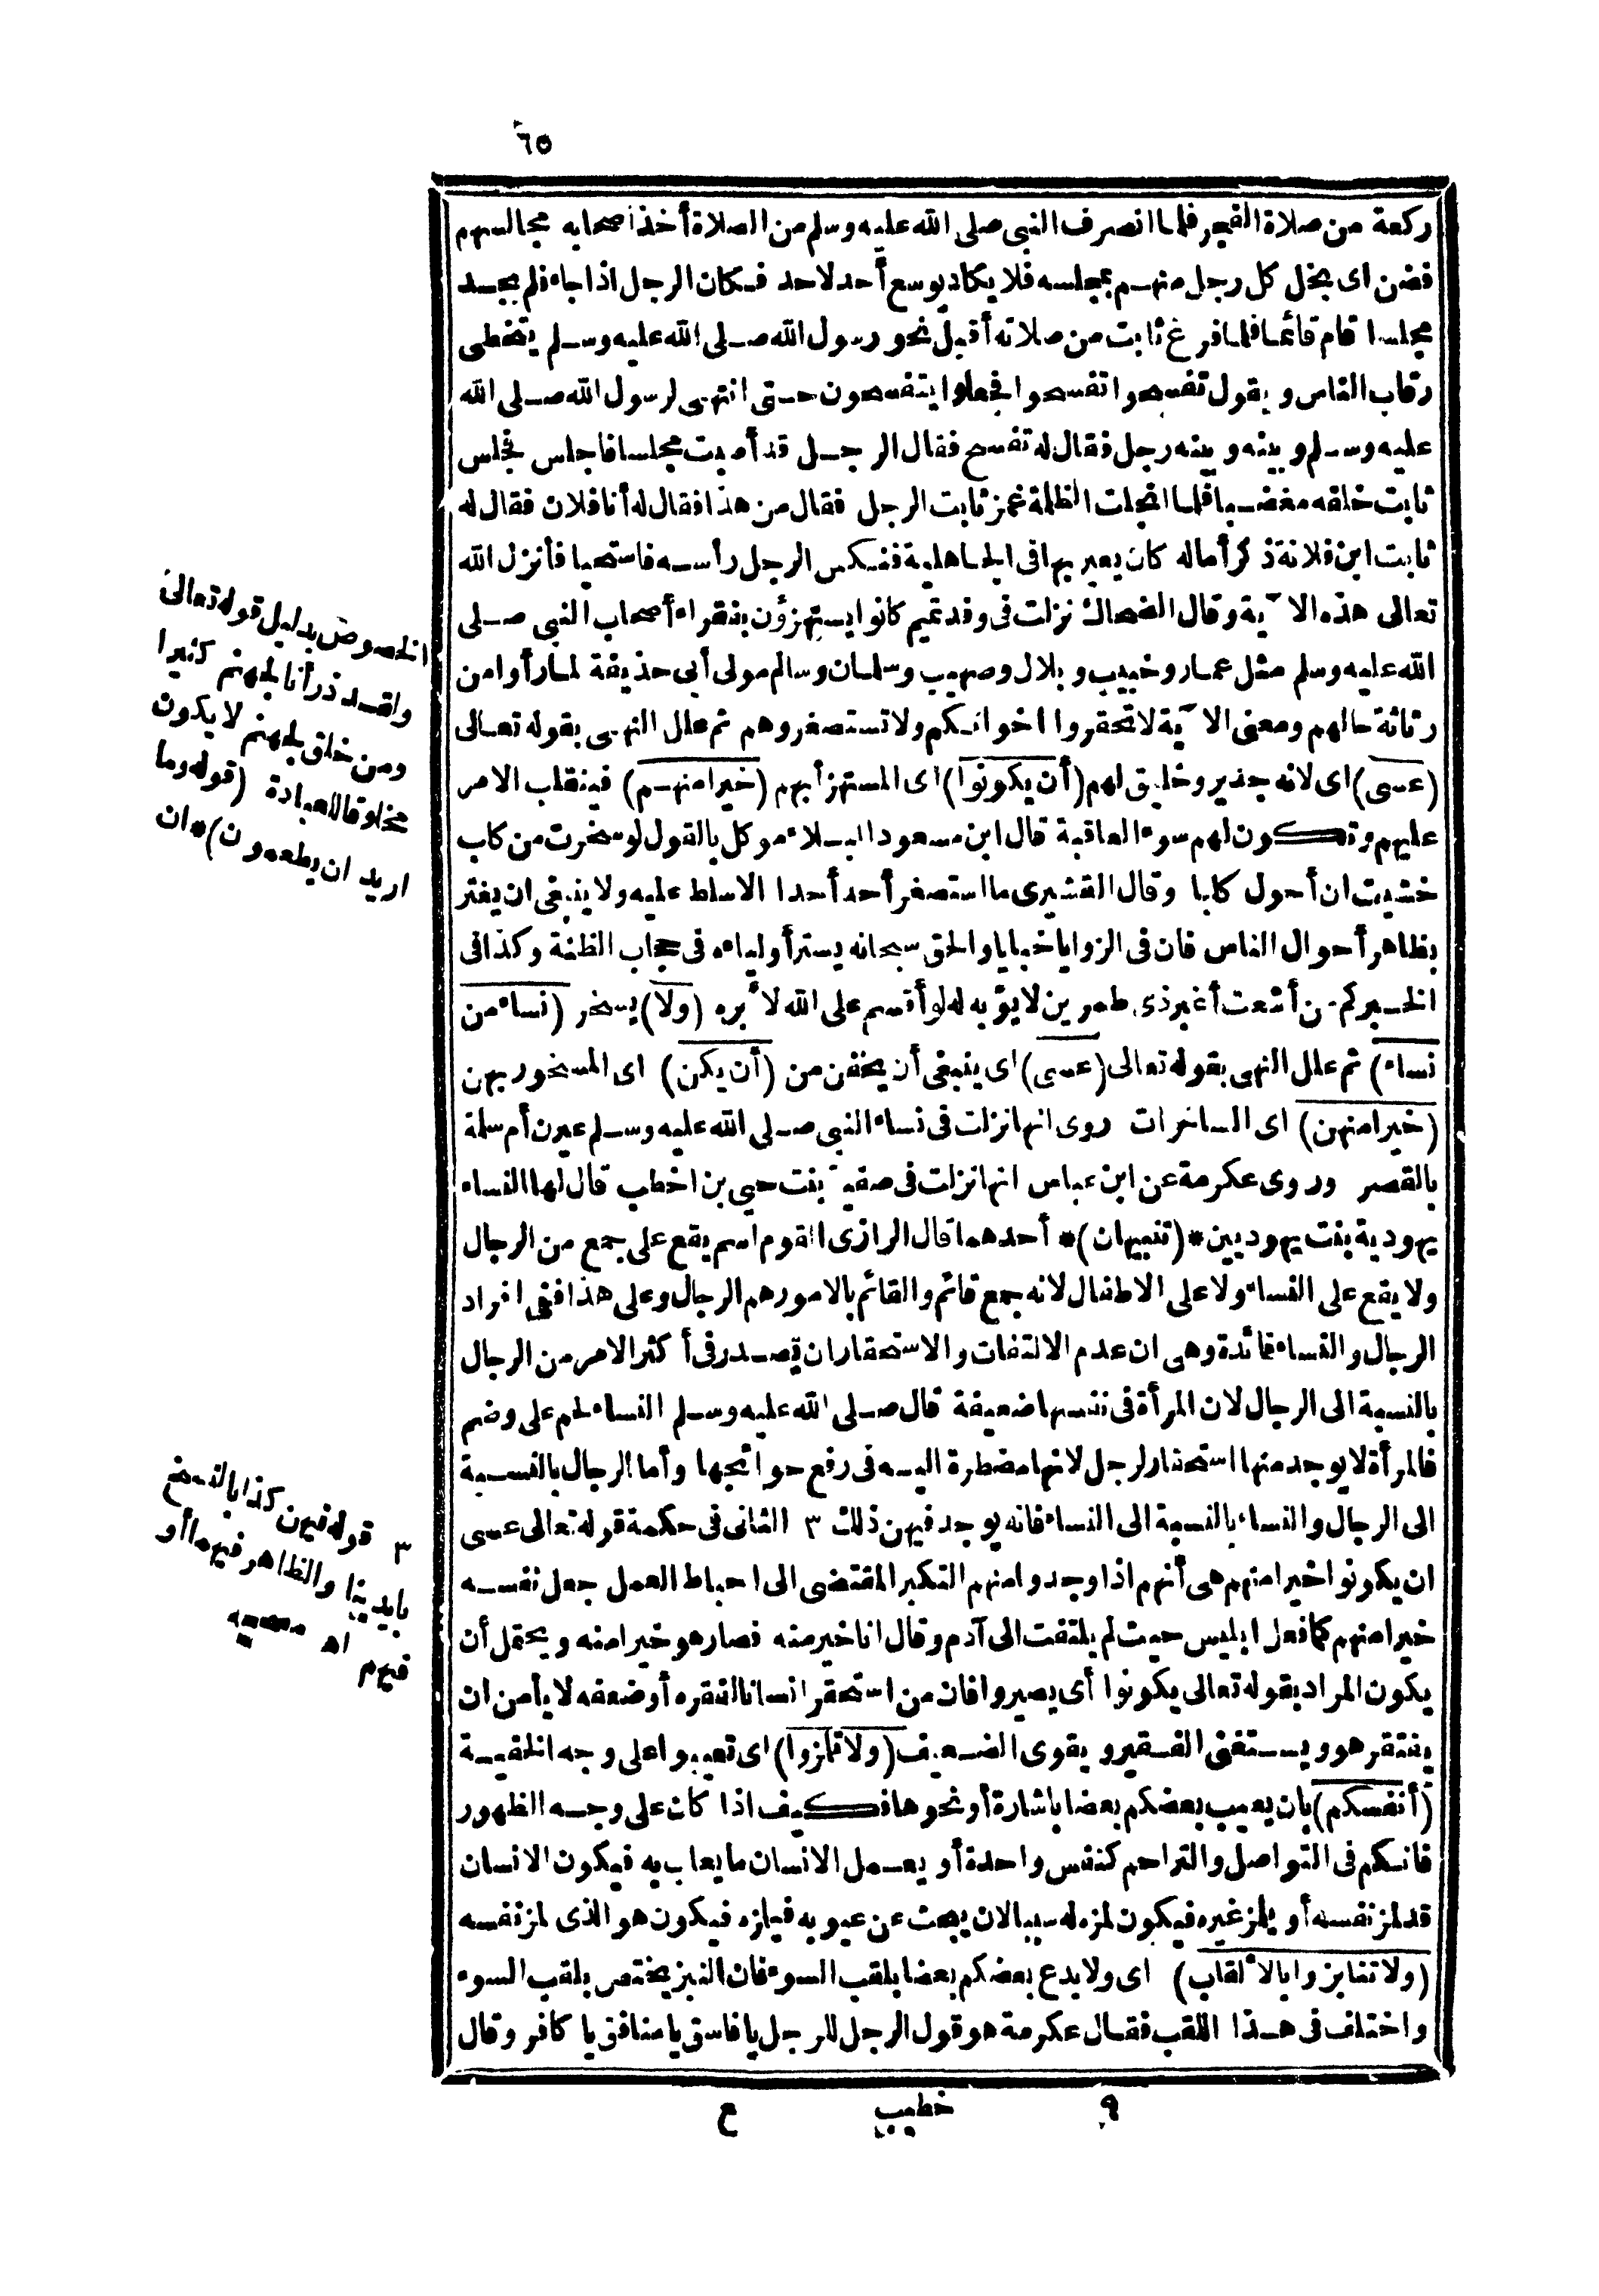 ٦٥
ركعة من صلاة الفجر فلما انصرف النبي صلى الله عليه وسلم من الصلاة أخذ أصحابه مجالسهم
فضن اى بخل كل رجل منهم بمجلسه فلا يكاد يوسع أحد لاحد فكان الرجل اذا جاء فلم يجد
مجلسا قام قائما فلما فرغ ثابت من صلاته أقبل نحو رسول الله صلى الله عليه وسلم يتخطى
رقاب الناس و يقول تفسحوا تفسحوا فجعلوا يتفسحون حتى انتهى لرسول الله صلى الله
عليه وسلم و بينه و بينه رجل فقال له تفسح فقال الرجل قد أصبت مجلسا فاجلس فجلس
ثابت خلفه مغضبا فلما انجلت الظلمة غمز ثابت الرجل فقال من هذا فقال له أنا فلان فقال له
ثابت ابن فلانة ذكر أما له كان يعير بها فى الجاهلية فنكس الرجل رأسه فاستحيا فأنزل الله
تعالى هذه الآية وقال الضحاك نزلت فى وفد تميم كانوا يستهزؤن بفقراء أصحاب النبي صلى
الله عليه وسلم مثل عمار وخبيب و بلال وصهيب وسلمان وسالم مولى أبى حذيفة لما رأوا من
رثاثة حالهم ومعنى الآية لا تحقروا اخوانكم ولا تستصغروهم ثم علل النهى بقوله تعالى
(عسى) اى لانه جدير وخليق لهم (أن يكونوا) اى المستهزأ بهم (خيرا منهم) فينقلب الامر
عليهم وتكون لهم سوء العاقبة قال ابن مسعود البلاء موكل بالقول لو سخرت من كلب
خشيت ان أحول كلبا وقال القشيرى ما استصغر أحد أحدا الا سلط عليه ولا ينبغى ان يغتر
بظاهر أحوال الناس فان فى الزوايا خبايا والحق سبحانه يستر أولياءه فى حجاب الظنة وكذا فى
الخبر كم من أشعث أغبر ذى طمرين لا يؤبه له لو أقسم على الله لأبره (ولا) يسخر (نساء من
نساء) ثم علل النهى بقوله تعالى (عسى) اى ينبغى أن يخفن من (أن يكن) اى المسخور بهن
(خيرا منهن) اى الساخرات روى انها نزلت فى نساء النبي صلى الله عليه وسلم عيرن أم سلمة
بالقصر وروى عكرمة عن ابن عباس انها نزلت فى صفية بنت حيي بن اخطب قال لها النساء
يهودية بنت يهوديين *(تنبيهان)* أحدهما قال الرازى القوم اسم يقع على جمع من الرجال
ولا يقع على النساء ولا على الاطفال لانه جمع قائم والقائم بالامور هم الرجال وعلى هذا ففى افراد
الرجال والنساء فائدة وهى ان عدم الالتفات والاستحقار ان يصدر فى أكثر الامر من الرجال
بالنسبة الى الرجال لان المرأة فى نفسها ضعيفة قال صلى الله عليه وسلم النساء لحم على وضم
فالمرأة لا يوجد منها استحقار لرجل لانها مضطرة اليه فى رفع حوائجها وأما الرجال بالنسبة
الى الرجال والنساء بالنسبة الى النساء فانه يوجد فيهن ذلك ٣ الثانى فى حكمة قوله تعالى عسى
ان يكونوا خيرا منهم هى أنهم اذا وجدوا منهم التكبر المقتضى الى احباط العمل جعل نفسه
خيرا منهم كما فعل ابليس حيث لم يلتفت الى آدم وقال انا خير منه فصار هو خيرا منه ويحتمل أن
يكون المراد بقوله تعالى يكونوا أى يصيروا فان من استحقر انسانا لفقره أو ضعفه لا يأمن ان
يفتقر هو ويستغنى الفقير و يقوى الضعيف (ولا تلمزوا) اى تعيبوا على وجه الخفية
(أنفسكم) بان يعيب بعضكم بعضا باشارة أو نحوها فكيف اذا كان على وجه الظهور
فانكم فى التواصل والتراحم كنفس واحدة أو يعمل الانسان ما يعاب به فيكون الانسان
قد لمز نفسه أو يلمز غيره فيكون لمزه له سببا لان يبحث عن عيوبه فيلمزه فيكون هو الذى لمز نفسه
(ولا تنابزوا بالألقاب) اى ولا يدع بعضكم بعضا بلقب السوء فان النبز يختص بلقب السوء
واختلف فى هذا اللقب فقال عكرمة هو قول الرجل للرجل يا فاسق يا منافق يا كافر وقال
٩ خطيب ع
الخصوص بدليل قوله تعالى
ولقد ذرأنا لجهنم كثيرا
ومن خلق لجهنم لا يكون
مخلوقا للعبادة (قوله وما
اريد ان يطعمون)* ان
٣ قوله فيهن كذا بالنسخ
بايدينا والظاهر فيهما أو
فيهم اه مصححه